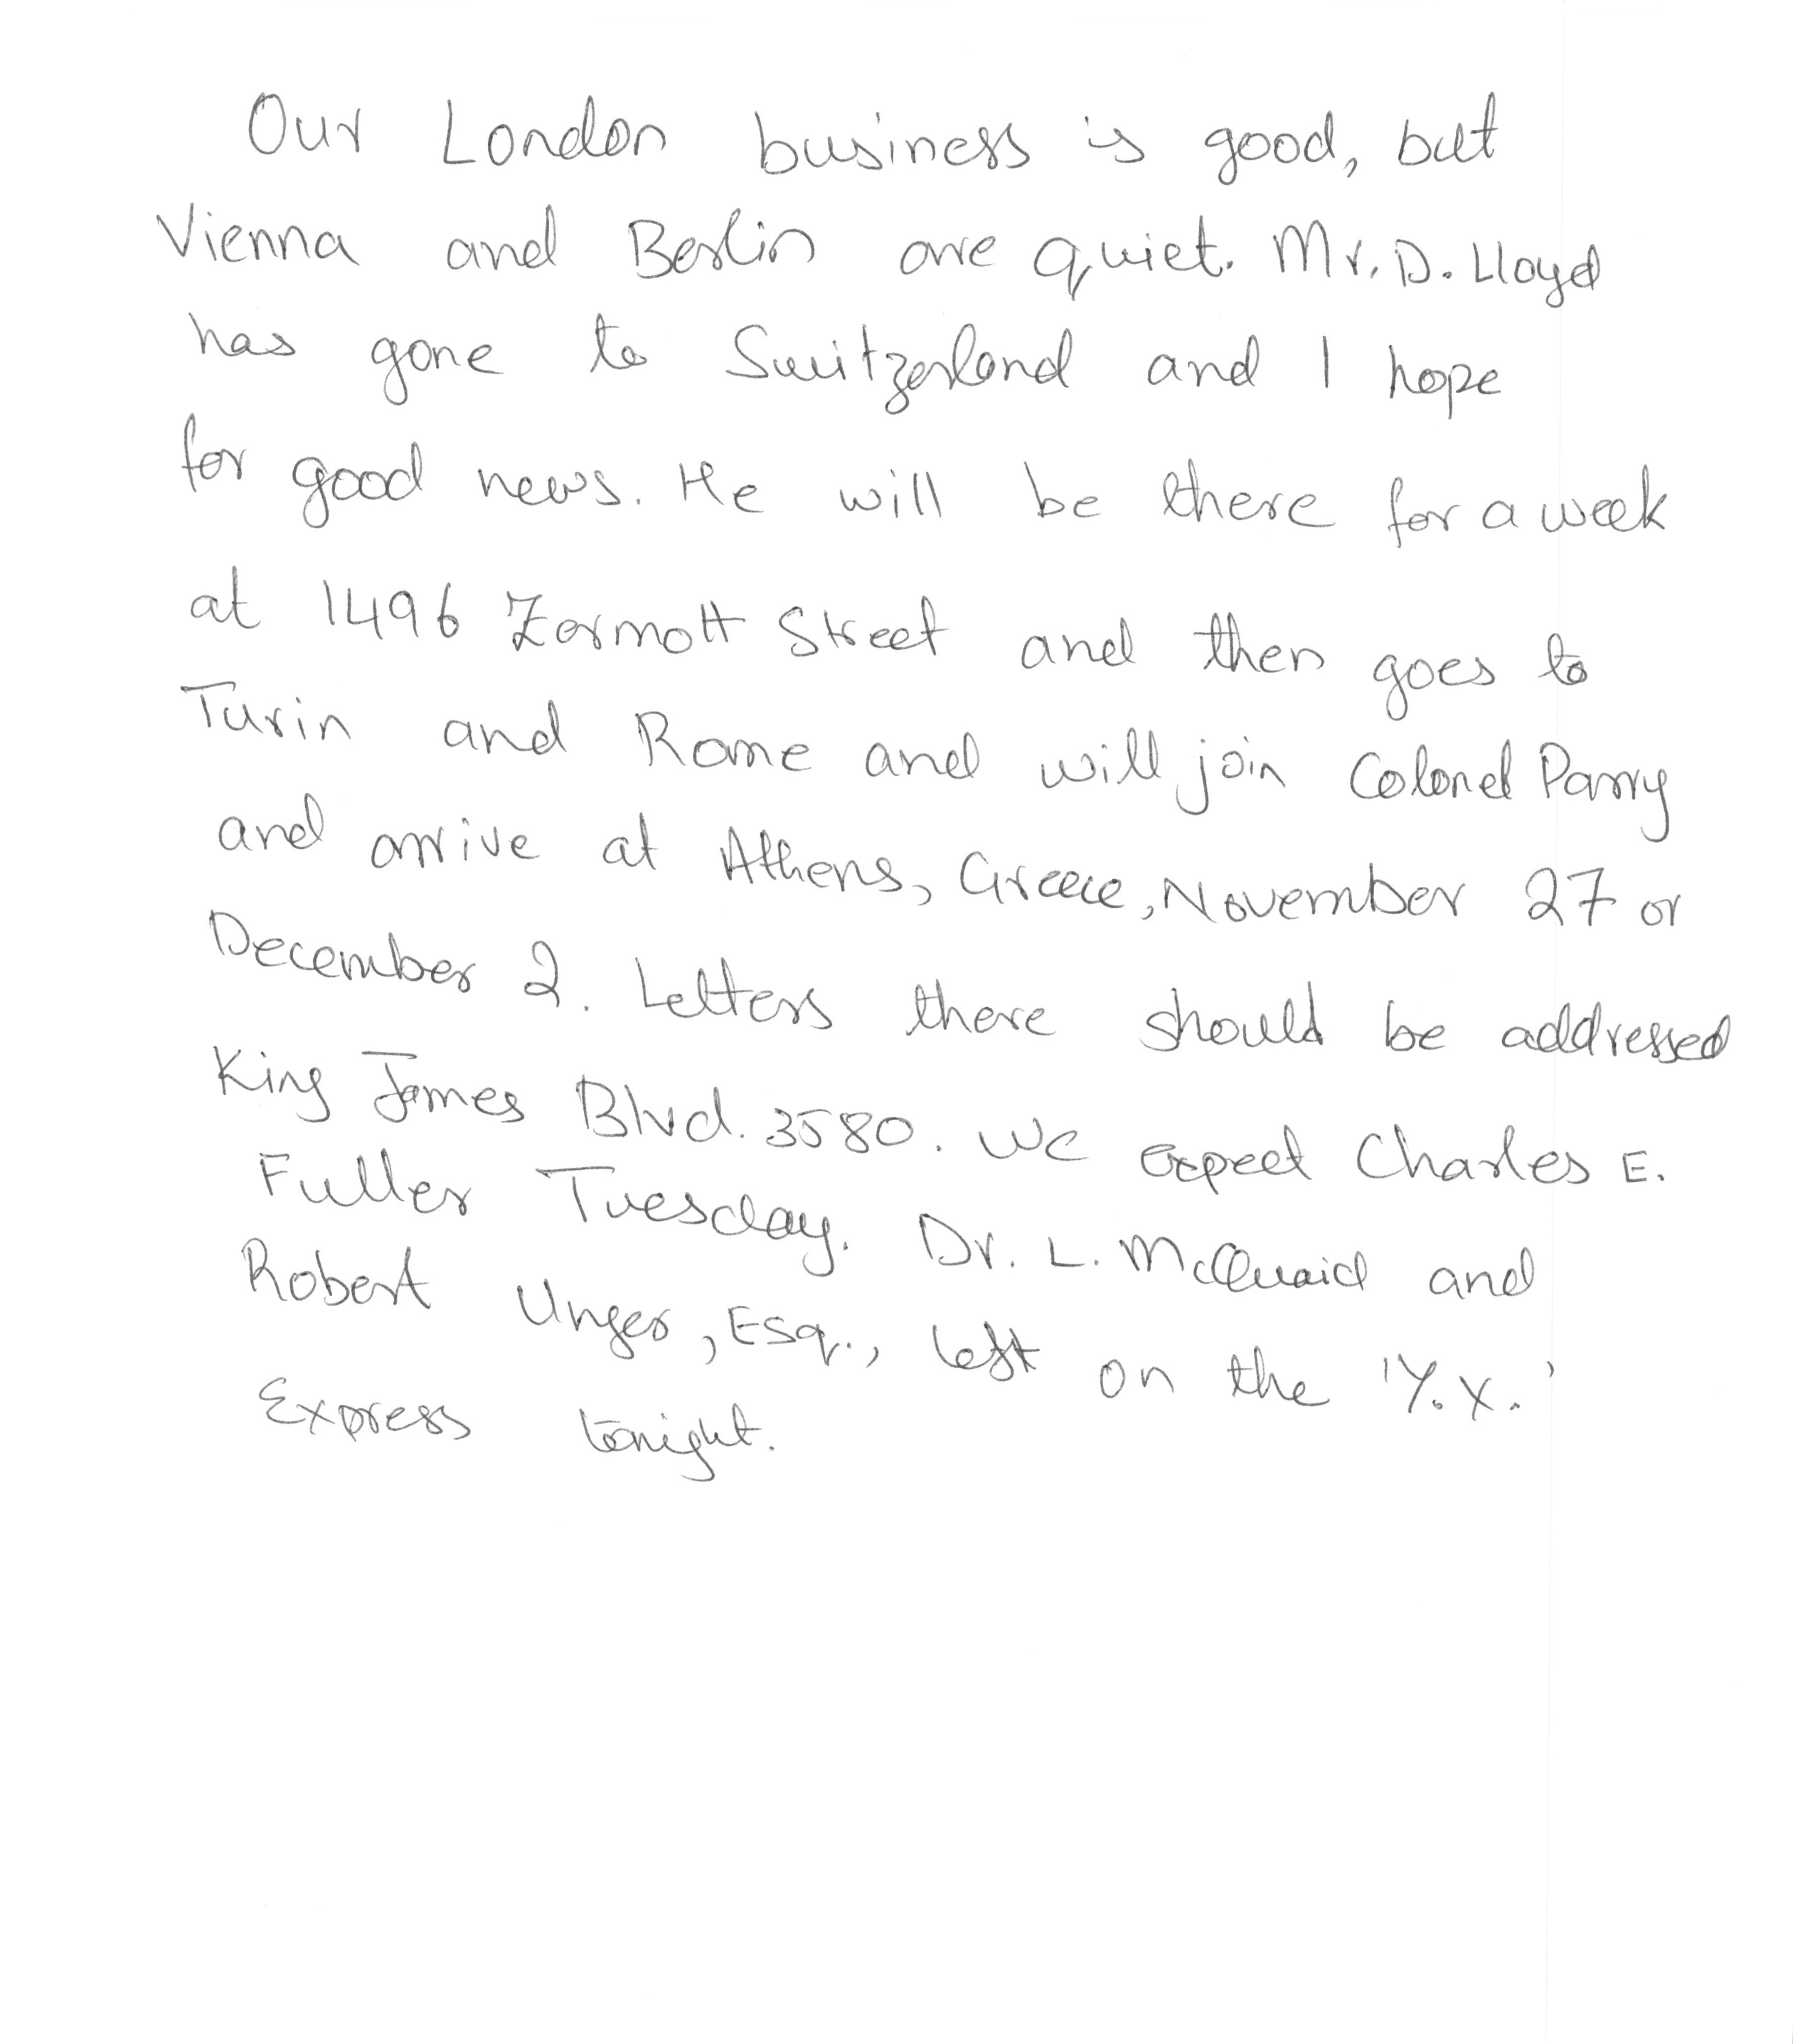 Our London business is good, but
Vienna and Berlin are quiet. Mr. D. Lloyd
has gone to Switzerland and I hope
for good news. He will be there for a week
at 1496 Zermott Street and then goes to
Turin and Rome and will join Colonel Parry
and arrive at Athens, Greece, November 27 or
December 2. Letters there should be addressed
King James Blvd. 3580. We expect Charles E.
Fuller Tuesday. Dr. L. McQuaid and
Robert Unger, Esq., left on the 'Y.X.'
Express tonight.